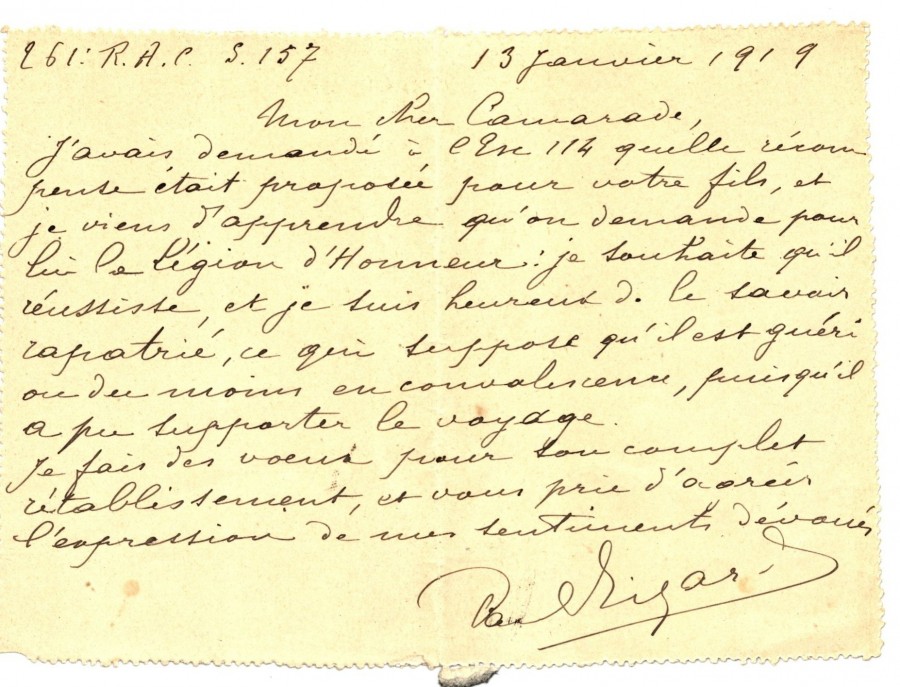 261e R.A.C. S. 157 13 Janvier 1919
Mon cher Camarade,
J'avais demandé à l'Esc 114 quelle récom
pense était proposée pour votre fils, et
je viens d'apprendre qu'on demande pour
lui la Légion d'Honneur : je souhaite qu'il
réussisse, et je suis heureux de le savoir
rapatrié, ce qui suppose qu'il est guéri
ou du moins en convalescence, puisqu'il
a pu supporter le voyage.
Je fais des voeux pour son complet
rétablissement, et vous prie d'agréer
l'expression de mes sentiments dévoués